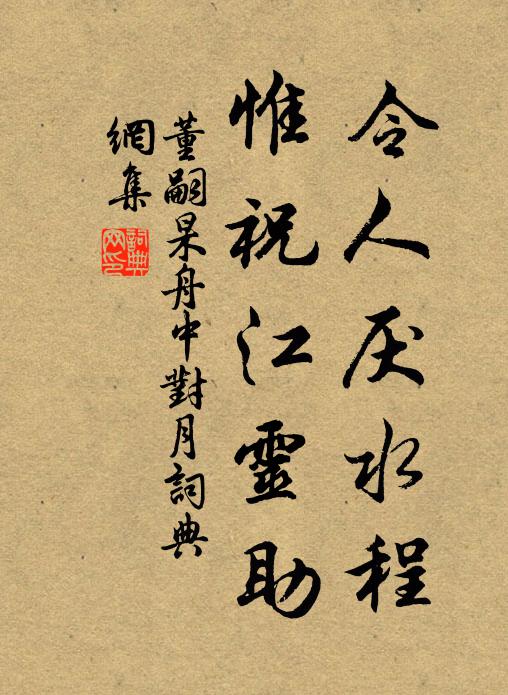 令人厌水程
惟祝江靈助
董嗣杲舟中對月詞典
網集
詞典
网印